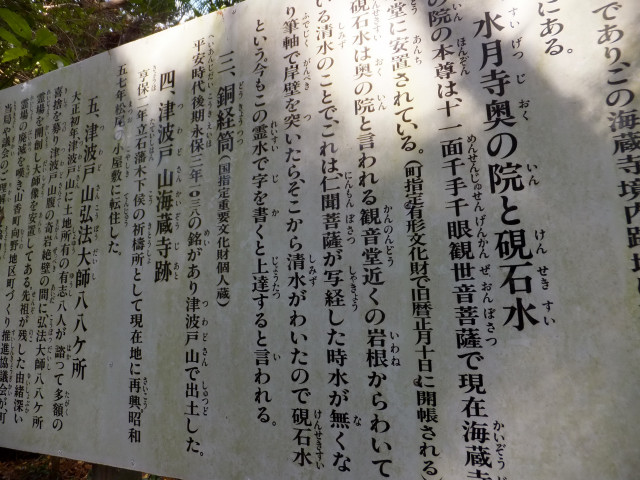 であり、この海蔵寺境内跡地
にある。
水月寺奥の院と硯石水
の院の本尊は、十一面千手千眼観世音菩薩で現在海蔵寺
堂に安置されている。(町指定有形文化財で旧暦正月十日に開帳される)
硯石水は奥の院と言われる観音堂近くの岩根からわいて
いる清水のことで、これは、仁聞菩薩が写経した時水が無くな
り筆軸で岸壁を突いたらそこから清水がわいたので硯石水
という。今もこの霊水で字を書くと上達すると言われる。
三、銅経筒(国指定重要文化財個人蔵)
平安時代後期永保三年一〇八三の銘があり津波戸山で出土した。
四、津波戸山海蔵寺跡
享保二年立石藩木下侯の祈禱所として現在地に再興、昭和
五七年松尾 小屋敷に転住した。
五、津波戸山弘法大師八八ケ所
大正初年津波戸山に土地所有の有志八人が諮って多額の
喜捨を募り津波戸山腹の奇岩絶壁の間に弘法大師八八ケ所
霊場を開創し大師像を安置してある。先祖が残した由緒深い
霊場の壊滅を嘆き、山香町向野地区町づくり推進協議会が、町
当局や議会のご理解